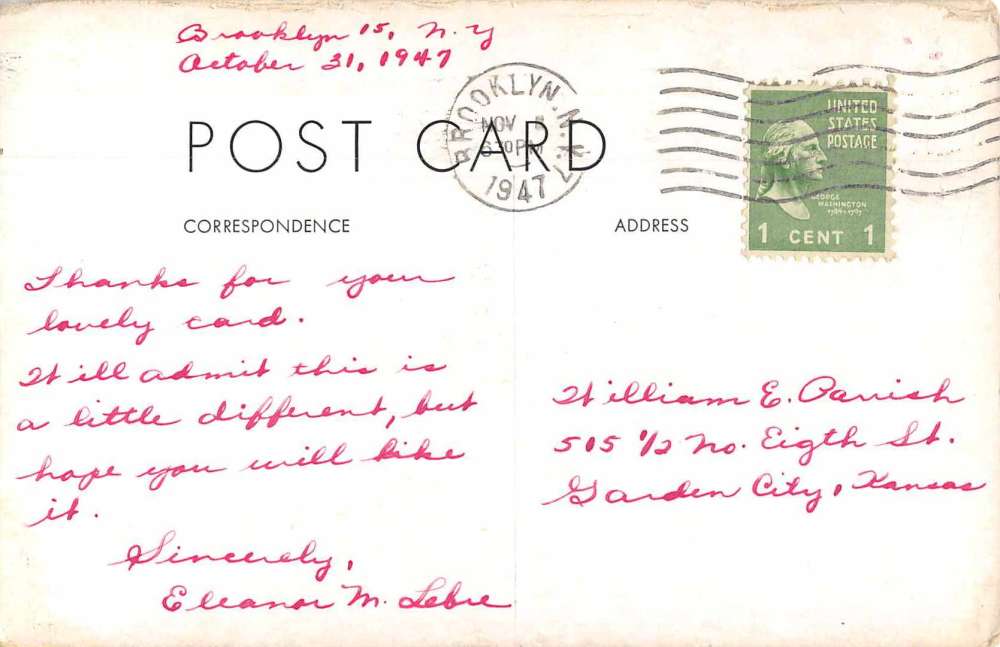 Brooklyn 15, N.Y
October 31, 1947
POST CARD
BROOKLYN, N.Y.
NOV
6 30 PM
1947
UNITED
STATES
POSTAGE
GEORGE
WASHINGTON
1789-1797
1 CENT 1
CORRESPONDENCE
ADDRESS
Thanks for your
lovely card.
Will admit this is
a little different, but
hope you will like
it.
Sincerely,
Eleanor M. Lebre
William E. Parrish
505 1/2 No. Eigth St.
Garden City, Kansas